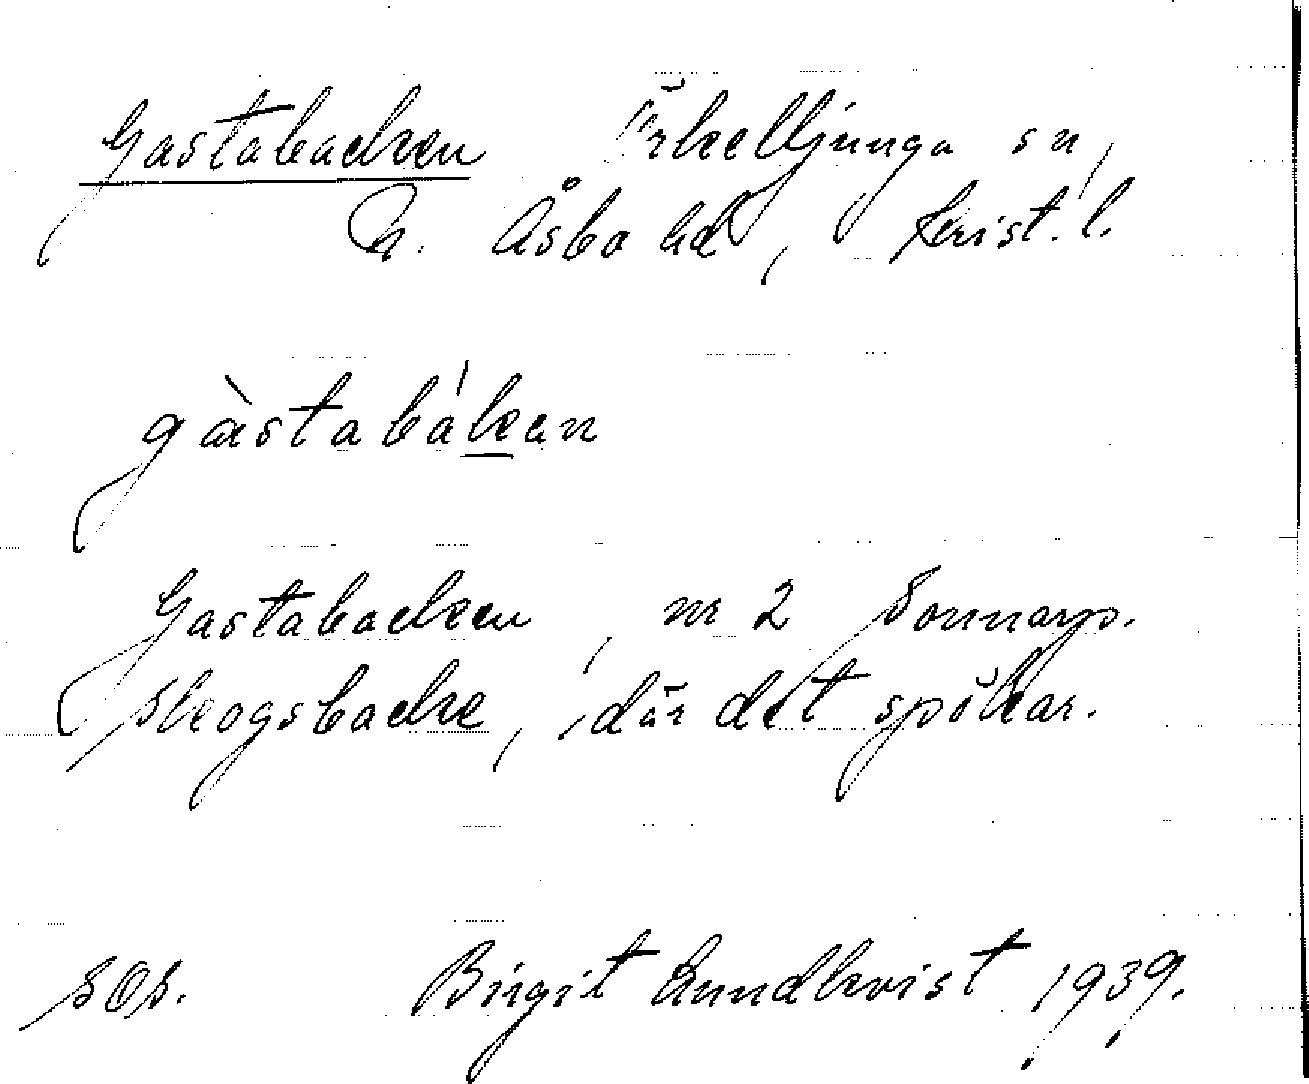 Gastabacken Örkelljunga sn,
N. Åsbo hd, Krist. l.
gàstabákan
Gastabacken, nr 2 Sonnarp.
Skogsbacke, där det spökar.
SOS. Birgit Lundkvist 1939.